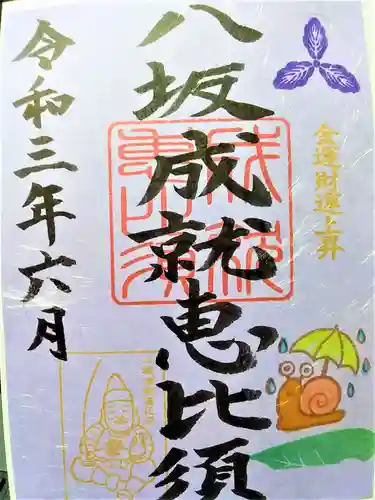 金運財運上昇
八坂成就恵比須
令和三年六月